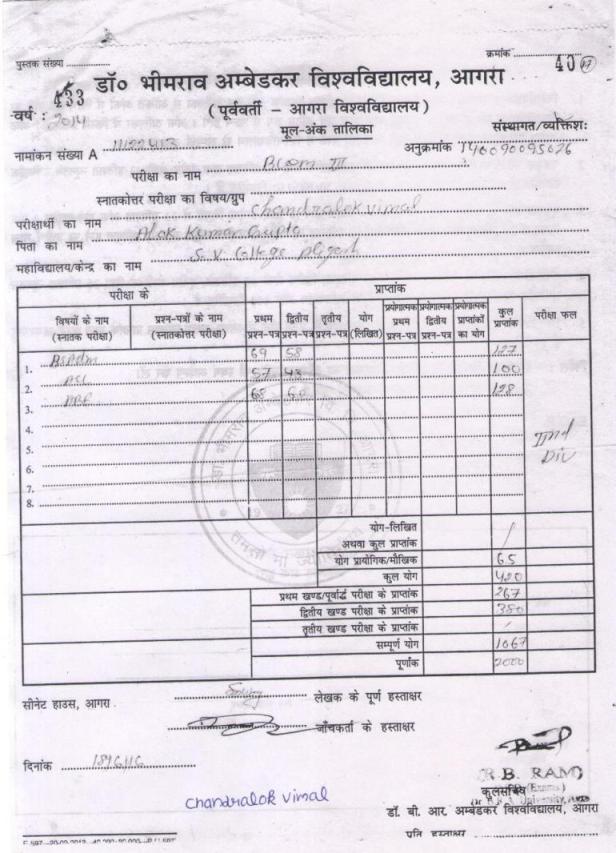 पुस्तक संख्या
क्रमांक
433
डॉ० भीमराव अम्बेडकर विश्वविद्यालय, आगरा
वर्ष : 2014
(पूर्ववर्ती – आगरा विश्वविद्यालय)
मूल-अंक तालिका
संस्थागत/व्यक्तिशः
नामांकन संख्या A
अनुक्रमांक
परीक्षा का नाम B.Com III
स्नातकोत्तर परीक्षा का विषय/ग्रुप
परीक्षार्थी का नाम Chandralok vimal
पिता का नाम Alok Kumar Gupta
महाविद्यालय/केन्द्र का नाम S. V. College
परीक्षा के
प्राप्तांक
विषयों के नाम (स्नातक परीक्षा)
प्रश्न-पत्रों के नाम (स्नातकोत्तर परीक्षा)
प्रथम प्रश्न-पत्र
द्वितीय प्रश्न-पत्र
तृतीय प्रश्न-पत्र
योग (लिखित)
प्रयोगात्मक प्रथम प्रश्न-पत्र
प्रयोगात्मक द्वितीय प्रश्न-पत्र
प्रयोगात्मक प्राप्तांकों का योग
कुल प्राप्तांक
परीक्षा फल
1. 69 58 127
2. 57 43 100
3. 68 60 128
4.
5.
6.
7.
8.
IInd
Div
योग-लिखित
अथवा कुल प्राप्तांक
योग प्रायोगिक/मौखिक 65
कुल योग 420
प्रथम खण्ड/पूर्वार्द्ध परीक्षा के प्राप्तांक 267
द्वितीय खण्ड परीक्षा के प्राप्तांक 380
तृतीय खण्ड परीक्षा के प्राप्तांक
सम्पूर्ण योग 1067
पूर्णांक 2000
सीनेट हाउस, आगरा
लेखक के पूर्ण हस्ताक्षर
जाँचकर्ता के हस्ताक्षर
दिनांक
R.B. RAM
कुलसचिव
Chandralok vimal
डॉ. बी. आर. अम्बेडकर विश्वविद्यालय, आगरा
प्रति हस्ताक्षर